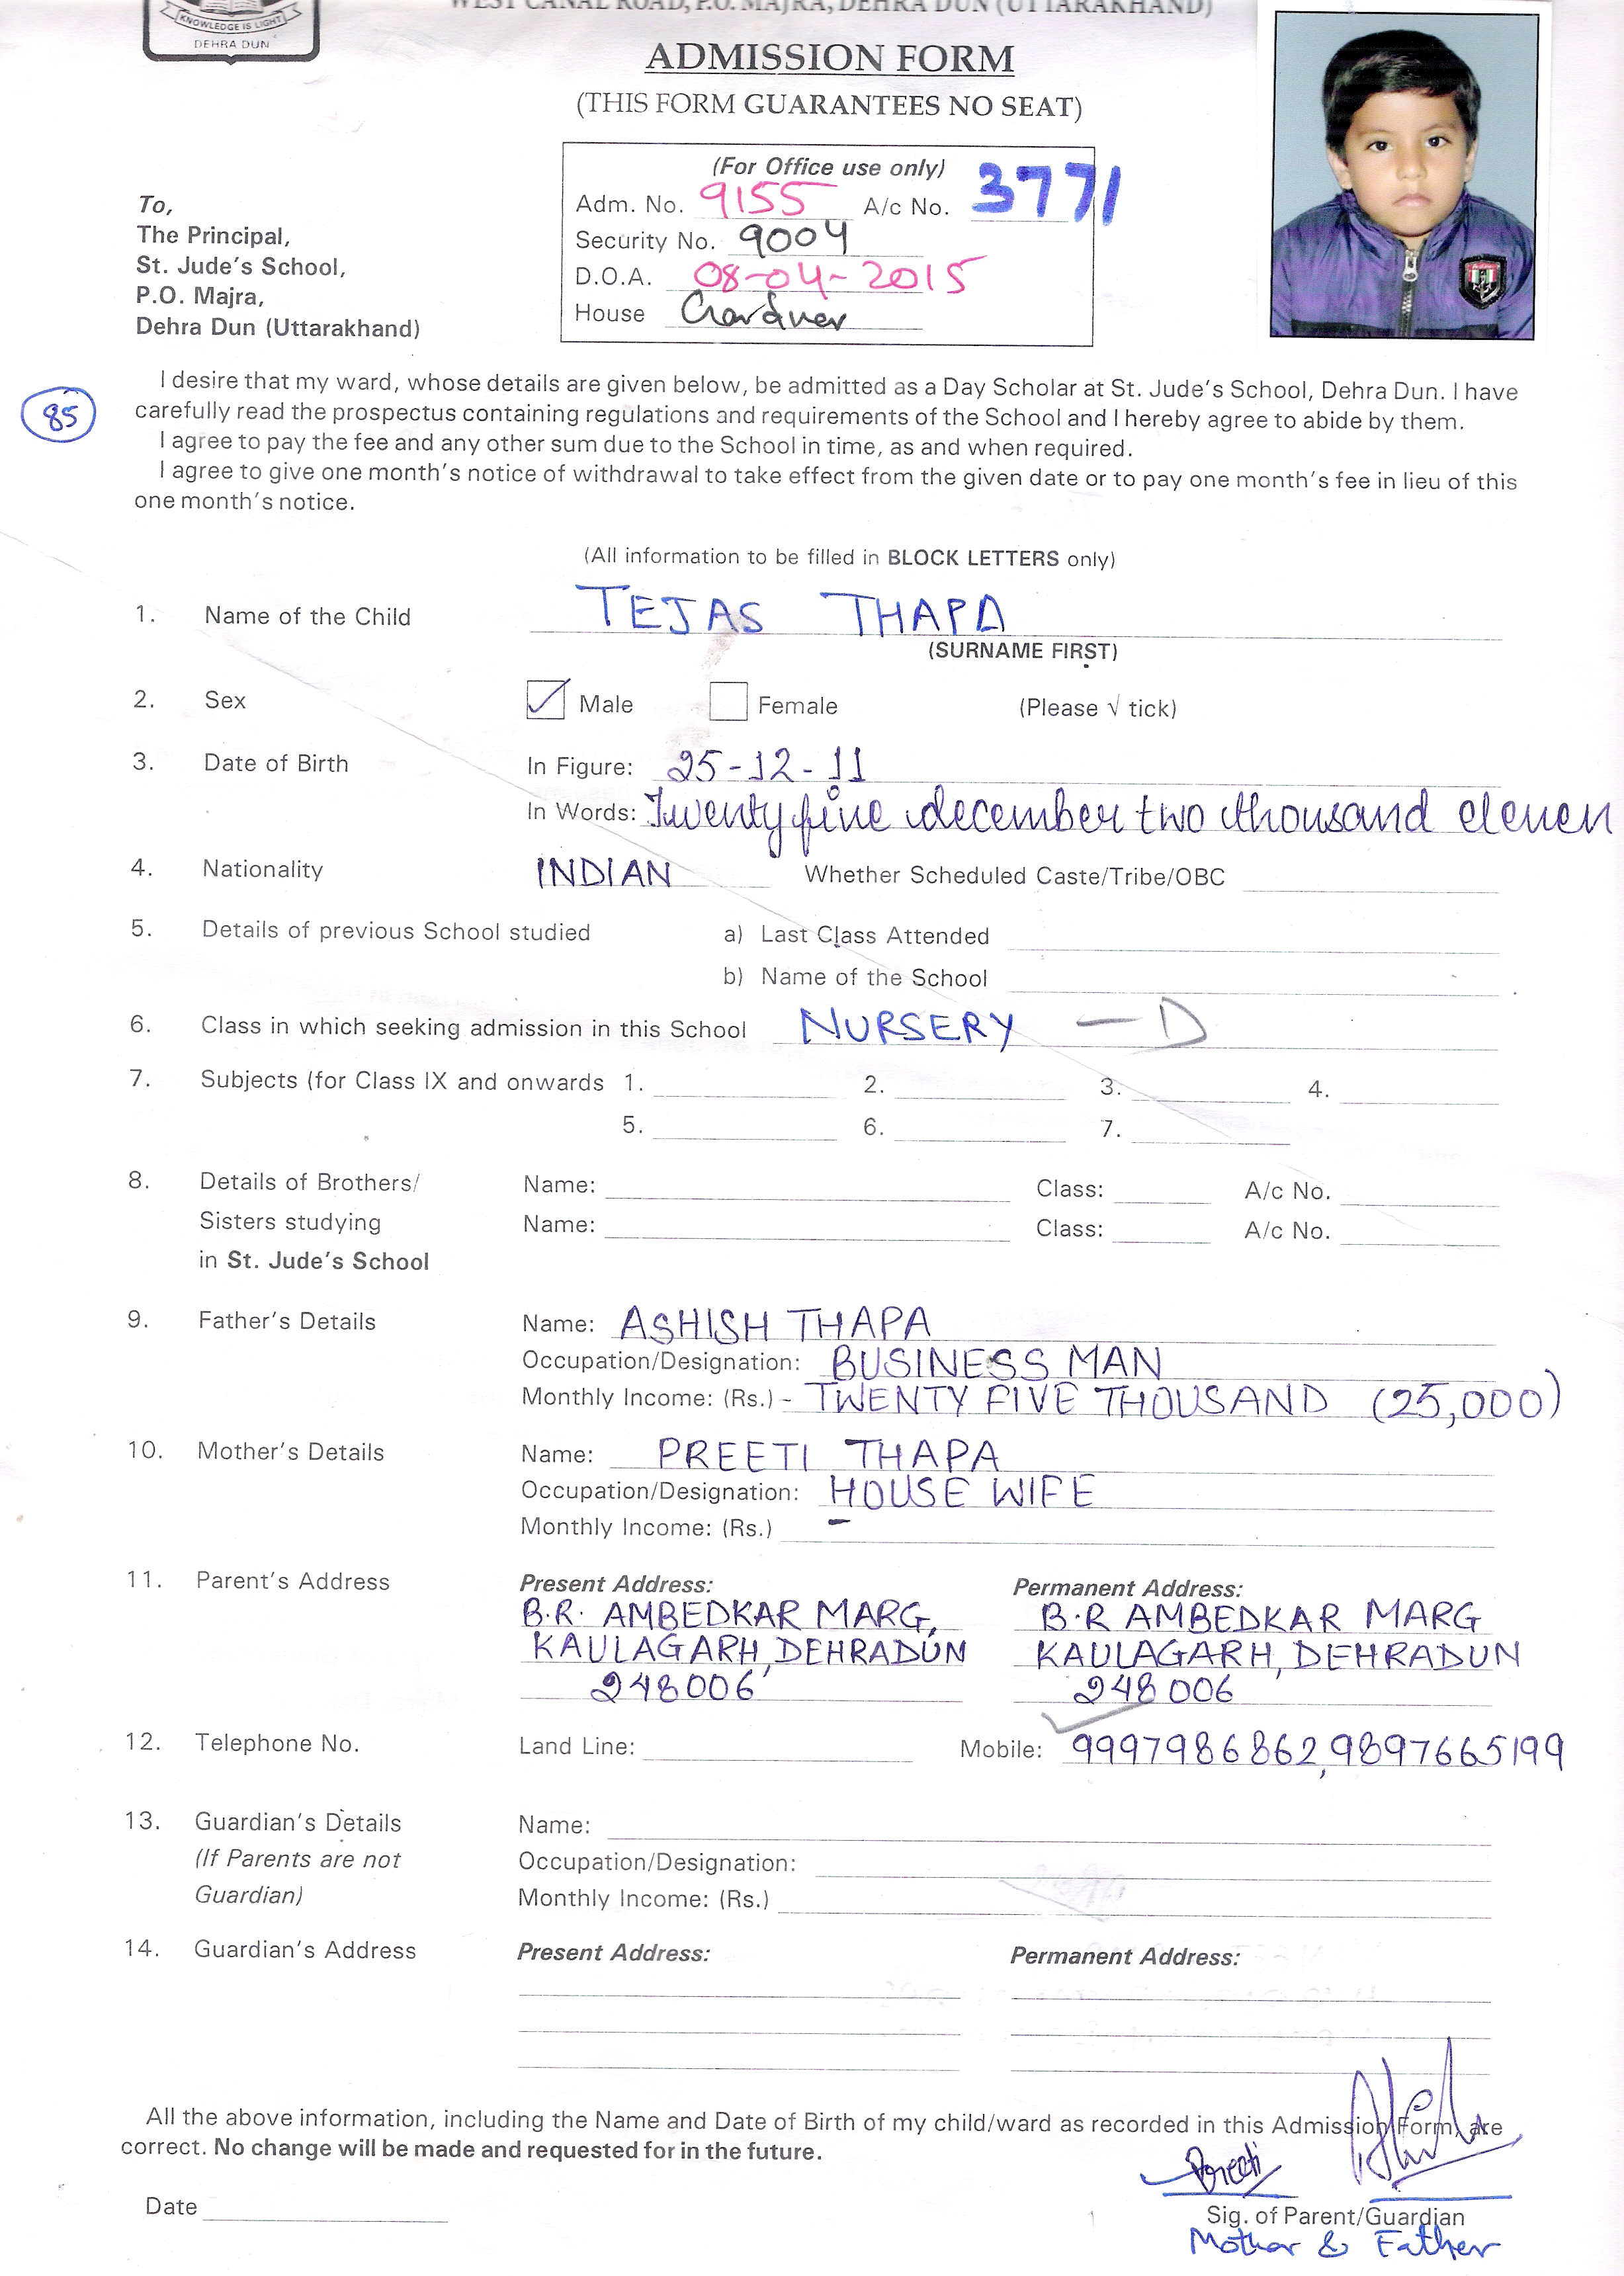 KNOWLEDGE IS LIGHT
DEHRA DUN
WEST CANAL ROAD, P.O. MAJRA, DEHRA DUN (UTTARAKHAND)
ADMISSION FORM
(THIS FORM GUARANTEES NO SEAT)
(For Office use only)
Adm. No. 9155 A/c No. 3771
Security No. 9004
D.O.A. 08-04-2015
House Gardner
To,
The Principal,
St. Jude's School,
P.O. Majra,
Dehra Dun (Uttarakhand)
85
I desire that my ward, whose details are given below, be admitted as a Day Scholar at St. Jude's School, Dehra Dun. I have
carefully read the prospectus containing regulations and requirements of the School and I hereby agree to abide by them.
I agree to pay the fee and any other sum due to the School in time, as and when required.
I agree to give one month's notice of withdrawal to take effect from the given date or to pay one month's fee in lieu of this
one month's notice.
(All information to be filled in BLOCK LETTERS only)
1. Name of the Child TEJAS THAPA
(SURNAME FIRST)
2. Sex Male Female (Please √ tick)
3. Date of Birth In Figure: 25-12-11
In Words: Twenty five december two thousand eleven
4. Nationality INDIAN Whether Scheduled Caste/Tribe/OBC
5. Details of previous School studied a) Last Class Attended
b) Name of the School
6. Class in which seeking admission in this School NURSERY — D
7. Subjects (for Class IX and onwards 1. 2. 3. 4.
5. 6. 7.
8. Details of Brothers/ Name: Class: A/c No.
Sisters studying Name: Class: A/c No.
in St. Jude's School
9. Father's Details Name: ASHISH THAPA
Occupation/Designation: BUSINESS MAN
Monthly Income: (Rs.) - TWENTY FIVE THOUSAND (25,000)
10. Mother's Details Name: PREETI THAPA
Occupation/Designation: HOUSE WIFE
Monthly Income: (Rs.) -
11. Parent's Address Present Address: Permanent Address:
B.R. AMBEDKAR MARG, B.R AMBEDKAR MARG
KAULAGARH, DEHRADUN KAULAGARH, DEHRADUN
248006 248006
12. Telephone No. Land Line: Mobile: 9997986862, 9897665199
13. Guardian's Details Name:
(If Parents are not Occupation/Designation:
Guardian) Monthly Income: (Rs.)
14. Guardian's Address Present Address: Permanent Address:
All the above information, including the Name and Date of Birth of my child/ward as recorded in this Admission Form, are
correct. No change will be made and requested for in the future.
Preeti
Date Sig. of Parent/Guardian
Mother & Father